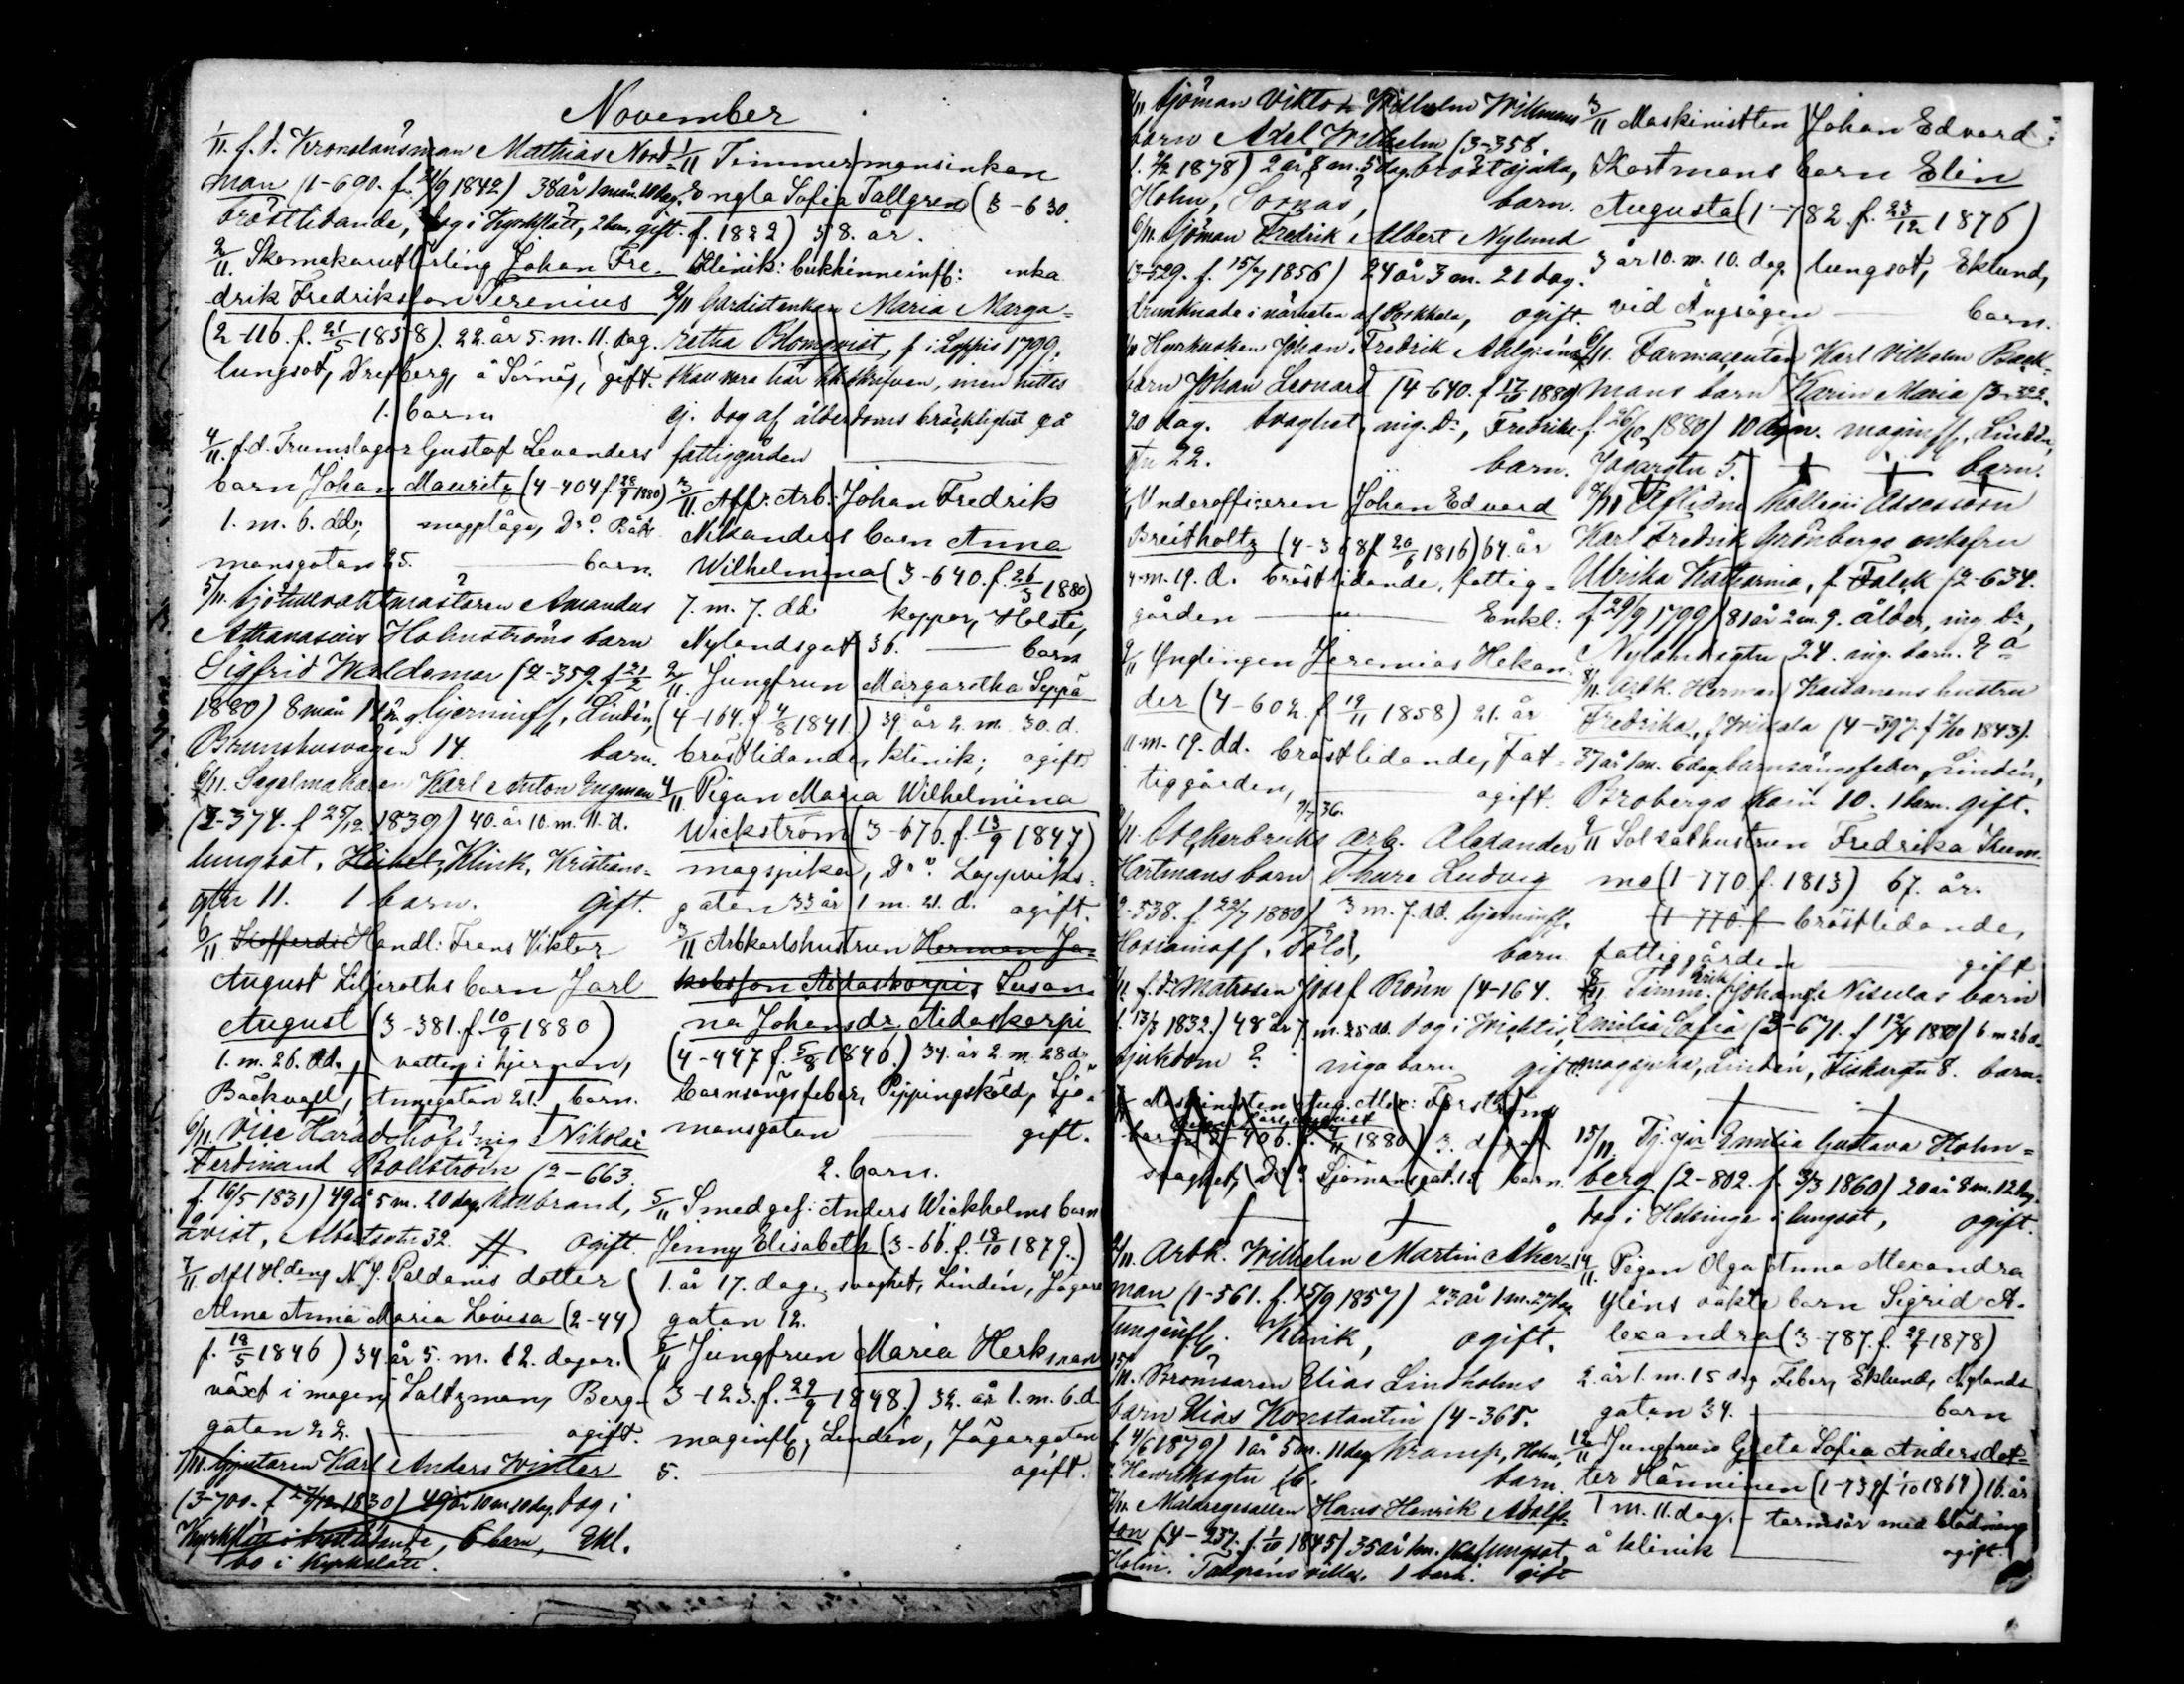 November
1/11. f.d. Kronolänsman Mathias Nord-
man (1-690. f. 21/9 1842) 38 år 1 mån. 10 dag.
bröstlidande, dog i Kyrkslätt, 2 barn, gift.
2/11. Skomakare Johan Fre-
drik Fredriksson Serenius
(2-116. f. 21/5 1858). 22. år 5. m. 11. dag.
lungsot, Drefberg, å Sörnäs, gift.
1. barn
4/11. f.d. Trumslagar Gustaf Levanders
barn Johan Mauritz (4-404 f. 28/9 1880)
1. m. 6. dd; magplåga, D:o Båts-
mansgatan 25. barn.
5/11. Sjötullvaktmästaren Amandus
Athanasius Holmströms barn
Sigfrid Waldemar (2-359. f 21/2
1880) 8 mån 14 d. hjerninfl., Lindén,
Brunshusvägen 14. barn.
6/11. Segelmakaren Karl Anton Engman
(2-374. f 25/12 1839) 40. år 10. m. 11. d.
lungsot, Klinik, Kristians-
gtn 11. 1 barn. Gift.
6/11 Handl: Frans Viktor
August Liljeroths barn Jarl
August (3-381. f. 10/9 1880)
1. m. 26. dd., vatten i hjernan,
Bäckvall, Annegatan 21. barn.
6/11. Vice Häradshöfding Nikolai
Ferdinand Bollström (2-663.
f. 16/5 1831) 49 år 5 m. 20 dag. Kallbrand,
Qvist, Albertsgtn 32. Ogift.
7/11 Afl Hdeng N. J. Paldanis dotter
Alma Anna Maria Lovisa (2-44)
f. 18/5 1846) 34 år 5. m. 12. dagar.
växt i magen, Saltzman, Berg-
gatan 22. ogift.
7/11. Gjutaren Karl Anders Winter
(3-700. f 27/12 1830) 49 år 10 m. 10 dag. dog i
Kyrkslätt i bröstlidande, 6 barn, Enkl.
bo i Kyrkslätt.
1/11 Timmermansenkan
Engla Sofia Tallgren (3-630.
f. 1822) 58. år.
Klinik: enka
2/11 Gardistenkan Maria Marga-
retha Blomqvist, f. i Loppis 1799.
Skall vara här inskrifven, men hittes
ej. dog af ålderdoms bräcklighet på
fattiggården
3/11. Aff: Arb: Johan Fredrik
Nikanders barn Anna
Wilhelmina (3-640. f. 26/3 1880)
7. m. 7. dd. koppor, Holsti,
Nylandsgat 36. barn
2/11. Jungfrun Margaretha Seppä
(4-164. f 4/8 1841.) 39. år 2. m. 30. d.
bröstlidande, klinik, ogift
4/11. Pigan Maria Wilhelmina
Wickström (3-676. f. 13/9 1847)
magsjuka, D:o Lappviks-
gatan 33 år 1 m. 21. d. ogift.
3/11 Arbkarlshustrun Herman Ja-
kobsson Aidaskorpis Susan-
na Johansdr Aidaskorpi
(4-447 f. 5/8 1846.) 34. år 2. m. 28 d.
barnsängsfeber, Pippingsköld, Sjö-
mansgatan gift.
2. barn.
5/11 Smedges: Anders Wickholms barn
Jenny Elisabeth (3-66. f. 18/10 1879.)
1. år 17. dag. svaghet, Lindén, Jägare
gatan 12.
5/11 Jungfrun Maria Herkman
(3-123. f. 29/9 1848.) 32. år 1. m. 6. d.
maginfl, Lindén, Jägargatan
5. ogift.
Sjöman Viktor Wilhelm Willmans
barn Axel Wilhelm (3-358.
f. 2/2 1878) 2 år 8 m. 5 dag. bröstsjuka,
Holm, Sörnäs, barn.
6/11. Sjöman Fredrik Albert Nylund
(3-529. f. 15/7 1856) 24 år 3 m. 21 dag.
drunknade i närheten af Porkkala, ogift.
Hyrkusken Johan Fredrik Ahlgréns
barn Johan Leonard (4-640. f 17/10 1880)
20 dag. svaghet, ing. Dr, Fredriks-
gtn 22. barn.
Underofficeren Johan Edvard
Breitholtz (4-368 f. 20/6 1816) 64. år
4. m. 19. d. bröstlidande, fattig-
gården Enkl.
9/11 Ynglingen Jeremias Hekan-
der (4-602. f 19/11 1858) 21. år
11. m. 19. dd. bröstlidande, Fat-
tiggården, ogift.
Sockerbruks arb. Alexander
Hartmans barn Thure Ludvig
2-538. f. 22/7 1880) 3 m. 7. dd. hjerninfl.
Hosiainoff, Tölö, barn
f.d. Matrosen Josef Rönn (4-164.
f. 13/3 1832.) 48 år 7. m. 25 dd. dog i Wichtis,
sjukdom? inga barn gift.
Maskinisten Aug. Alex: Forsströms
barn 406. f. 1880) 3. dagar
svaghet, D:o Sjömansgat. 15 barn.
Arbk. Wilhelm Martin Åker-
man (1-561. f. 15/9 1857) 23 år 1 m. 27 dag
lunginfl. Klinik, ogift.
Bromsaren Elias Lindholms
barn Elias Konstantin (4-365.
f. 4/6 1879) 1 år 5 m. 11 dag Kramp, Holm,
Henriksgtn 16. barn.
Målaregesällen Hans Henrik Adolfs-
son (4-237. f. 1/10 1845) 35 år 1 m. lungsot,
Holm. Tallgréns villa. 1 barn. gift
3/11 Maskinisten Johan Edvard
Kortmans barn Elin
Augusta (1-782. f. 23/12 1876)
3 år 10. m. 10. dag lungsot, Eklund,
vid Ångsågen barn.
6/11. Farmaceuten Karl Vilhelm Back-
mans barn Karin Maria (3-322.
f. 26/10 1880) 10 dagar. maginfl., Lindén,
Jägargtn 5. barn.
8/11 Aflidne Kollegii Assessorn
Karl Fredrik Grönbergs enkefru
Ulrika Katharina, f. Falck (2-634.
f. 29/9 1799) 81 år 2 m. 9. ålder, ing Dr,
Nylandsgtn 24. ing. barn. E a
8/11. Arbk. Herman Kaisanens hustru
Fredrika, f Wikala (4-397. f 2/10 1843).
37 år 1 m. 6 dag. barnsängsfeber, Lindén,
Brobergs kaj 10. 1 barn. gift.
9/11 Soldathustrun Fredrika Kum-
mo (1-770. f. 1813) 67. år.
(1-770. f bröstlidande,
fattiggården gift
8/11 Timm. Erik Johan Nisulas barn
Emilia Sofia (3-671. f 12/4 1880) 6 m 26 d.
magsjuka, Lindén, Fiskargtn 8. barn.
15/11 Tj. jfr Emilia Gustava Holm-
berg (2-802. f. 3/3 1860) 20 år 8 m. 12 dag.
dog i Helsinge i lungsot, ogift.
14/11. Pigan Olga Anna Alexandra
Yléns oäkta barn Sigrid A-
lexandra (3-787. f. 29/9 1878)
2. år 1. m. 15 dag Feber, Eklund, Nylands-
gatan 34. barn
12/11 Jungfrun Greta Sofia Andersdot-
ter Hänninen (1-739 f. 1/10 1864) 16. år
1 m. 11. dag. - tarmsår med blödning
å klinik ogift.